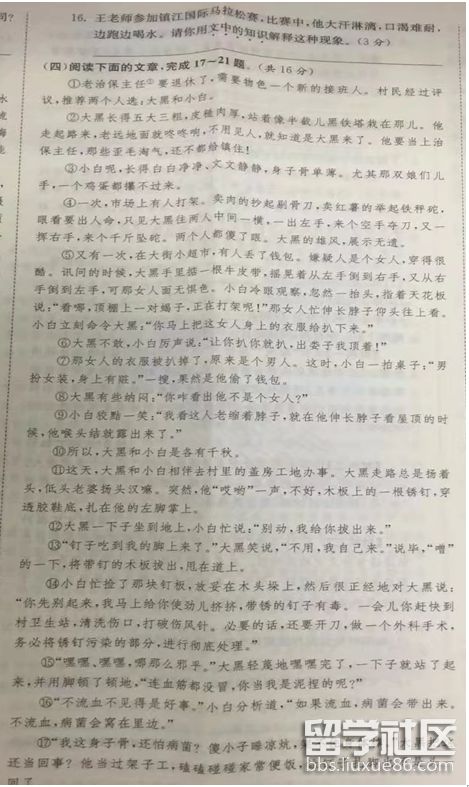 同?
16. 王老师参加镇江国际马拉松赛,比赛中,他大汗淋漓,口渴难耐,
边跑边喝水。请你用文中的知识解释这种现象。(3分)
(四)阅读下面的文章,完成17—21题。(共16分)
①老治保主任①要退休了,需要物色一个新的接班人。村民经过评
议,推荐两个人选:大黑和小白。
②大黑长得五大三粗,皮糙肉厚,站着像半截儿黑铁塔栽在那儿。他
走起路来,老远地面就咚咚响,不用见人,就知道是大黑来了。他要当上治
保主任,那些歪毛淘气,还不都给镇住!
③小白呢,长得白白净净、文文静静,身子骨单薄。尤其那双娘们儿
手,一个鸡蛋都攥不过来。
④一次,市场上有人打架。卖肉的抄起剔骨刀,卖红薯的举起铁秤砣,
眼看要出人命,只见大黑往两人中间一横,一出左手,来个空手夺刀,又一
挥右手,来个千斤坠砣。两个人都傻了眼。大黑的雄风,展示无遗。
⑤又有一次,在大街小超市,有人丢了钱包。嫌疑人是个女人,穿得很
酷。讯问的时候,大黑手里掂一根牛皮带,摇晃着从左手倒到右手,又从右
手倒到左手,可那女人面无惧色。小白冷眼观察,忽然一抬头,指着天花板
说:“看哪,顶棚上一对蝎子,正在打架呢!”那女人忙伸长脖子仰头往上看。
小白立刻命令大黑:“你马上把这女人身上的衣服给扒下来。”
⑥大黑不敢,小白厉声说:“让你扒你就扒,出娄子我顶着!”
⑦那女人的衣服被扒掉了,原来是个男人。这时,小白一拍桌子:“男
扮女装,身上有赃。”一搜,果然是他偷了钱包。
⑧大黑有些纳闷:“你咋看出他不是个女人?”
⑨小白狡黠一笑:“我看这人老缩着脖子,就在他伸长脖子看屋顶的时
候,他喉头结就露出来了。”
⑩所以,大黑和小白是各有千秋。
⑪这天,大黑和小白相伴去村里的盖房工地办事。大黑走路总是扬着
头,低头老婆扬头汉嘛。突然,他“哎哟”一声,不好,木板上的一根锈钉,穿
透胶鞋底,扎在他的左脚掌上。
⑫大黑一下子坐到地上,小白忙说:“别动,我给你拔出来。”
⑬“钉子吃到我的脚上来了。”大黑笑说,“不用,我自己来。”说毕,“噌”
的一下,将带钉的木板拔出,甩在道上。
⑭小白忙捡了那块钉板,放妥在木头垛上,然后很正经地对大黑说:
“你先别起来,我马上给你使劲儿挤挤,带锈的钉子有毒。一会儿你赶快到
村卫生站,清洗伤口,打破伤风针。必要的话,还要开刀,做一个外科手术,
务必将锈钉污染的部分,进行彻底处理。”
⑮“嘿嘿、嘿嘿,哪那么邪乎。”大黑轻蔑地嘿嘿完了,一下子就站了起
来,并用脚顿了顿地,“连血筋都没冒,你当我是泥捏的呢?”
⑯“不流血不见得是好事。”小白分析道,“如果流血,病菌会带出来。
不流血,病菌会窝在里边。”
⑰“我这身子骨,还怕病菌?傻小子睡凉炕,
还当回事?他当过架子工,磕磕碰碰家常便饭,
回了
留学社区
bbs.liuxue86.com